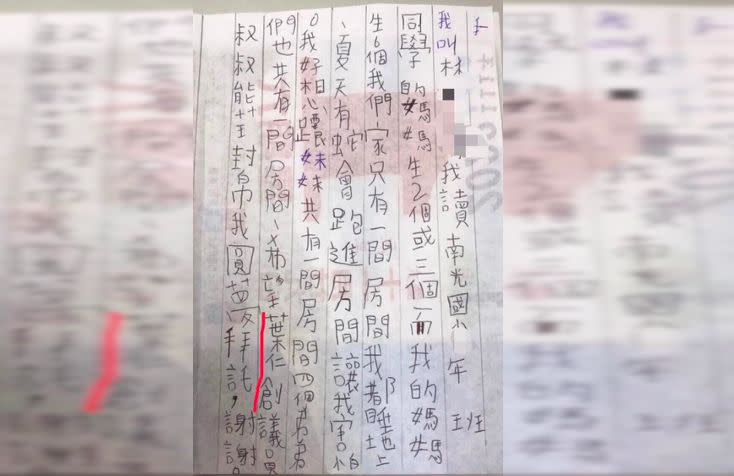 我叫林 我讀南光國小 年 班
同學的媽媽生2個或三個而我的媽媽
生6個我們家只有一間房間我都睡地上
、夏天有蛇會跑進房間讓我害怕
。我好想要跟妹妹共有一間房間四個弟弟
們也共有一間房間、希望葉仁創議員
叔叔能封幫我圓夢拜託,謝謝